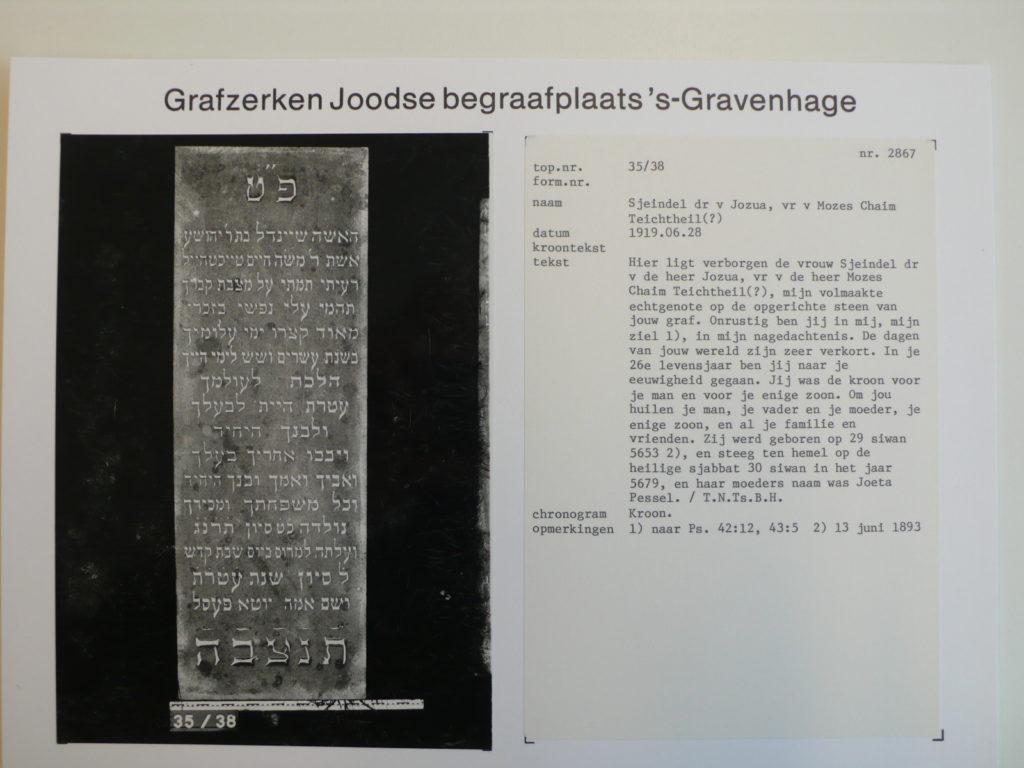 Grafzerken Joodse begraafplaats 's-Gravenhage
פ״ט
האשה שיינדל בת ר׳ יהושע
אשת ר׳ משה חיים טייכטהייל
רעיתי תמתי על מצבת קבריך
תהמי עלי נפשי בזכרי
מאוד קצרו ימי עלומיך
בשנת עשרים ושש לימי חייך
הלכת לעולמך
עטרת היית לבעלך
ולבנך היחיד
ויבכו אחריך בעלך
ואביך ואמך ובנך היחיד
וכל משפחתך ומכירך
נולדה כט סיון תרנג
ועלתה למרום ביום שבת קדש
ל סיון שנת עטרת
ושם אמה יוטא פעסל
תנצבה
35/38
nr. 2867
top.nr. 35/38
form.nr.
naam Sjeindel dr v Jozua, vr v Mozes Chaim
Teichtheil(?)
datum 1919.06.28
kroontekst
tekst Hier ligt verborgen de vrouw Sjeindel dr
v de heer Jozua, vr v de heer Mozes
Chaim Teichtheil(?), mijn volmaakte
echtgenote op de opgerichte steen van
jouw graf. Onrustig ben jij in mij, mijn
ziel 1), in mijn nagedachtenis. De dagen
van jouw wereld zijn zeer verkort. In je
26e levensjaar ben jij naar je
eeuwigheid gegaan. Jij was de kroon voor
je man en voor je enige zoon. Om jou
huilen je man, je vader en je moeder, je
enige zoon, en al je familie en
vrienden. Zij werd geboren op 29 siwan
5653 2), en steeg ten hemel op de
heilige sjabbat 30 siwan in het jaar
5679, en haar moeders naam was Joeta
Pessel. / T.N.Ts.B.H.
chronogram Kroon.
opmerkingen 1) naar Ps. 42:12, 43:5 2) 13 juni 1893